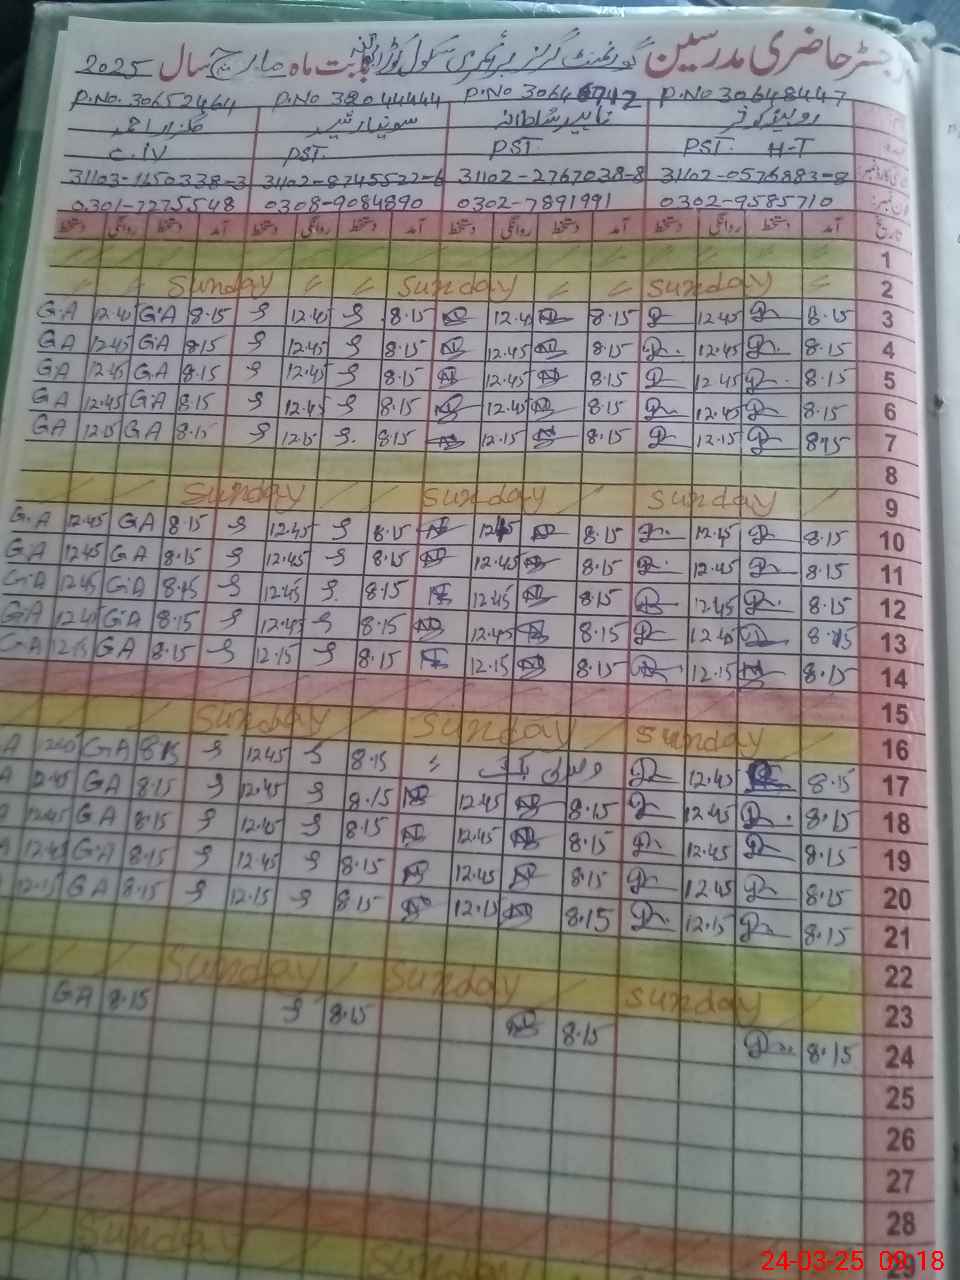 رجسٹر حاضری مدرسین گورنمنٹ گرلز پرائمری سکول بابت ماہ مارچ سال 2025
P.No 30648447 P.No 306 P.No 30044444 P.No. 30652464
روبینہ کوثر ناہید سلطانہ سونیا رشید گلزار احمد
PST. H-T PST. PST. C.IV
31102-0576883-8 31102-2767038-8 31102-8745522-6 31103-1150338-3
0302-9585710 0302-7891991 0308-9084890 0301-7275548
تاریخ آمد دستخط روانگی دستخط آمد دستخط روانگی دستخط آمد دستخط روانگی دستخط آمد دستخط روانگی دستخط
1
2 Sunday Sunday Sunday
3 8.15 12.45 8.15 12.45 8.15 12.45 8.15 GA 12.45 G.A
4 8.15 12.45 8.15 12.45 8.15 12.45 8.15 GA 12.45 GA
5 8.15 12.45 8.15 12.45 8.15 12.45 8.15 GA 12.45 GA
6 8.15 12.45 8.15 12.45 8.15 12.45 8.15 GA 12.45 GA
7 8.15 12.15 8.15 12.15 8.15 12.15 8.15 GA 12.15 GA
8
9 Sunday Sunday Sunday
10 8.15 12.45 8.15 12.45 8.15 12.45 8.15 GA 12.45 G.A
11 8.15 12.45 8.15 12.45 8.15 12.45 8.15 GA 12.45 GA
12 8.15 12.45 8.15 12.45 8.15 12.45 8.15 GA 12.45 GA
13 8.15 12.45 8.15 12.45 8.15 12.45 8.15 GA 12.45 GA
14 8.15 12.15 8.15 12.15 8.15 12.15 8.15 GA 12.15 GA
15
16 Sunday Sunday Sunday
17 8.15 12.45 8.15 12.45 8.15 GA A
18 8.15 12.45 8.15 12.45 8.15 12.45 8.15 GA 12.45 A
19 8.15 12.45 8.15 12.45 8.15 12.45 8.15 GA 12.45
20 8.15 12.45 8.15 12.45 8.15 12.45 8.15 GA 12.45 A
21 8.15 12.15 8.15 12.15 8.15 12.15 8.15 GA 12.15
22
23 Sunday Sunday Sunday
24 8.15 8.15 8.15 8.15 GA
25
26
27
28
29 Sunday Sunday
24-03-25 09:18